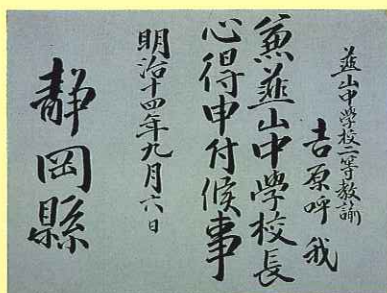 韮山中學校二等教諭
吉原呼我
兼韮山中學校長
心得申付候事
明治十四年九月六日
靜岡縣